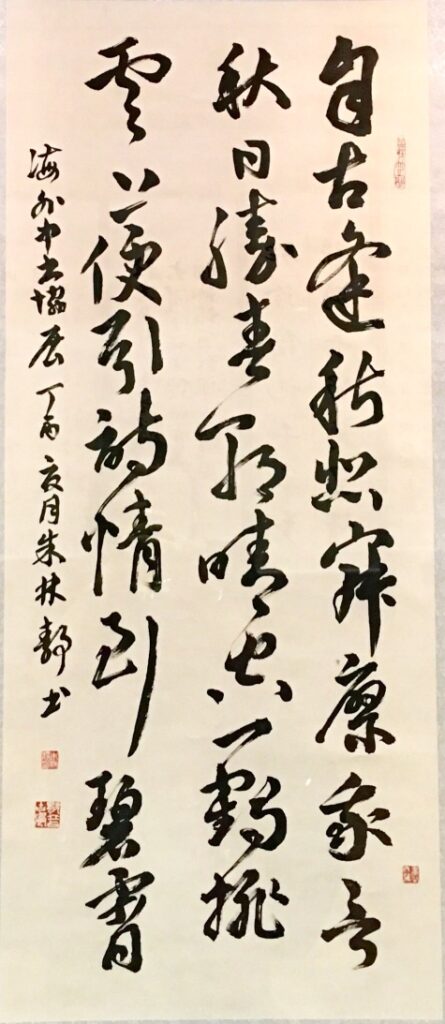 自古逢秋悲寂寥我言
秋日勝春朝晴空一鶴排
雲上便引詩情到碧霄
海外中书協展丁酉夏月朱林靜书